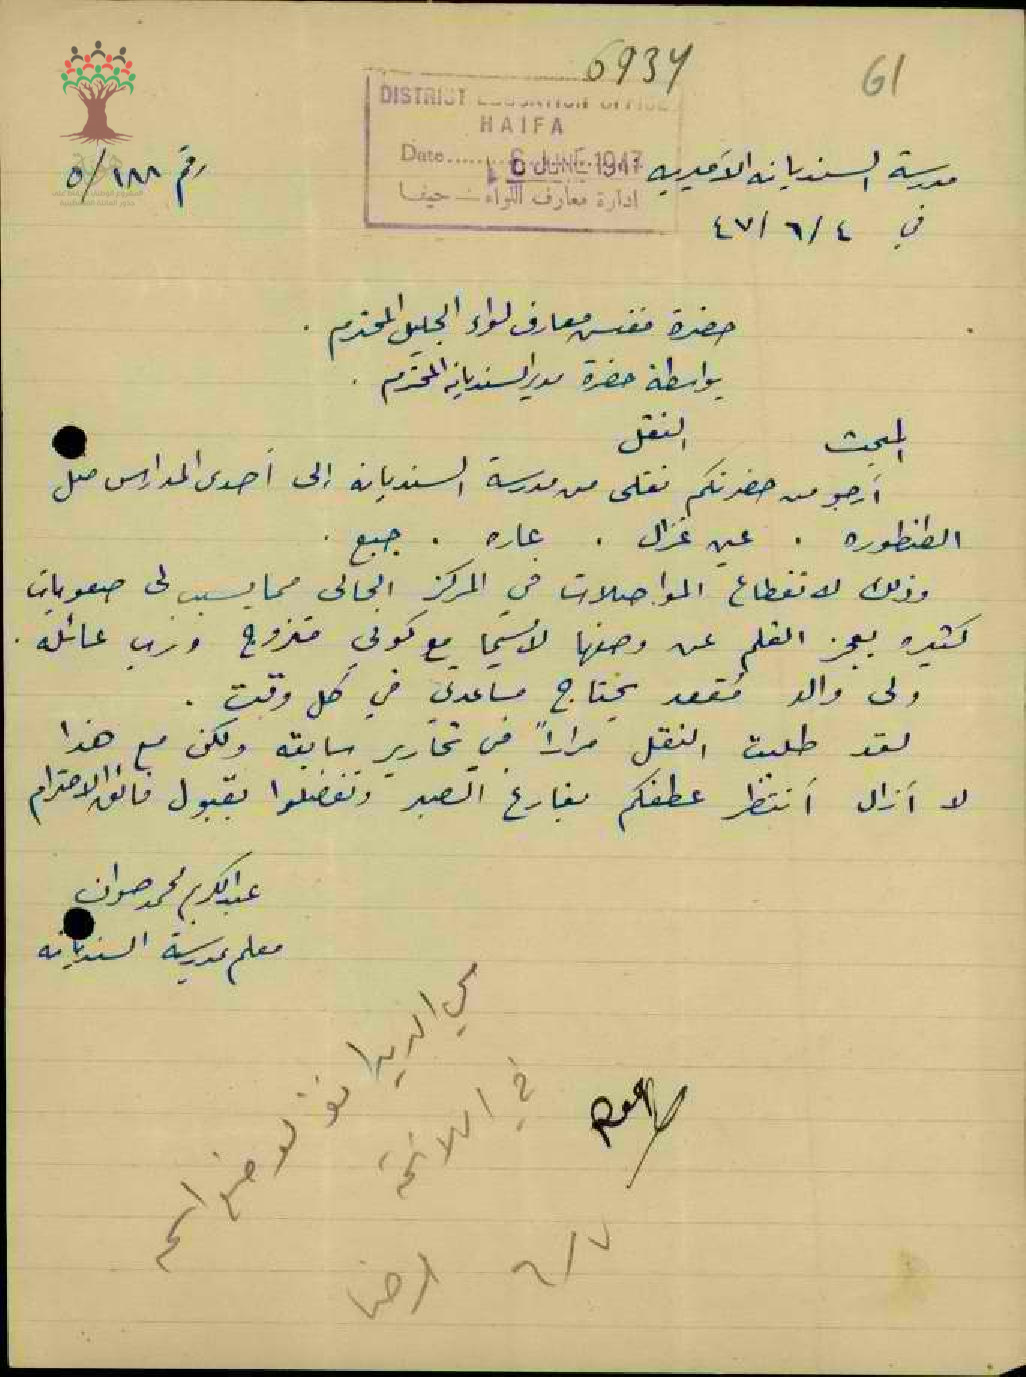 6934
61
DISTRICT EDUCATION OFFICE
HAIFA
Date 6 JUNE 1947
ادارة معارف اللواء - حيفا
مدرسة السنديانه الأميريه
رقم ٥/١٨٨
في ٤ /٦ /٤٧
حضرة مفتش معارف لواء الجليل المحترم .
بواسطة حضرة مدير السنديانه المحترم .
المبحث النقل
أرجو من حضرتكم نقلي من مدرسة السنديانه الى أحدى المدارس مثل
الطنطوره . عين غزال . عاره . جبع .
وذلك لانقطاع المواصلات في المركز الحالي مما يسبب لي صعوبات
كثيره يعجز القلم عن وصفها لاسيما مع كوني متزوج ورب عائلة .
ولي والد مُقعد يحتاج مساعدتي في كل وقت .
لقد طلبت النقل مراراً في تحارير سابقه ولكن مع هذا
لا أزال أنتظر عطفكم بفارغ الصبر وتفضلوا بقبول فائق الاحترام
عبدالكريم محمد
معلم مدرسة السنديانه
في اللائحة
٦/٧